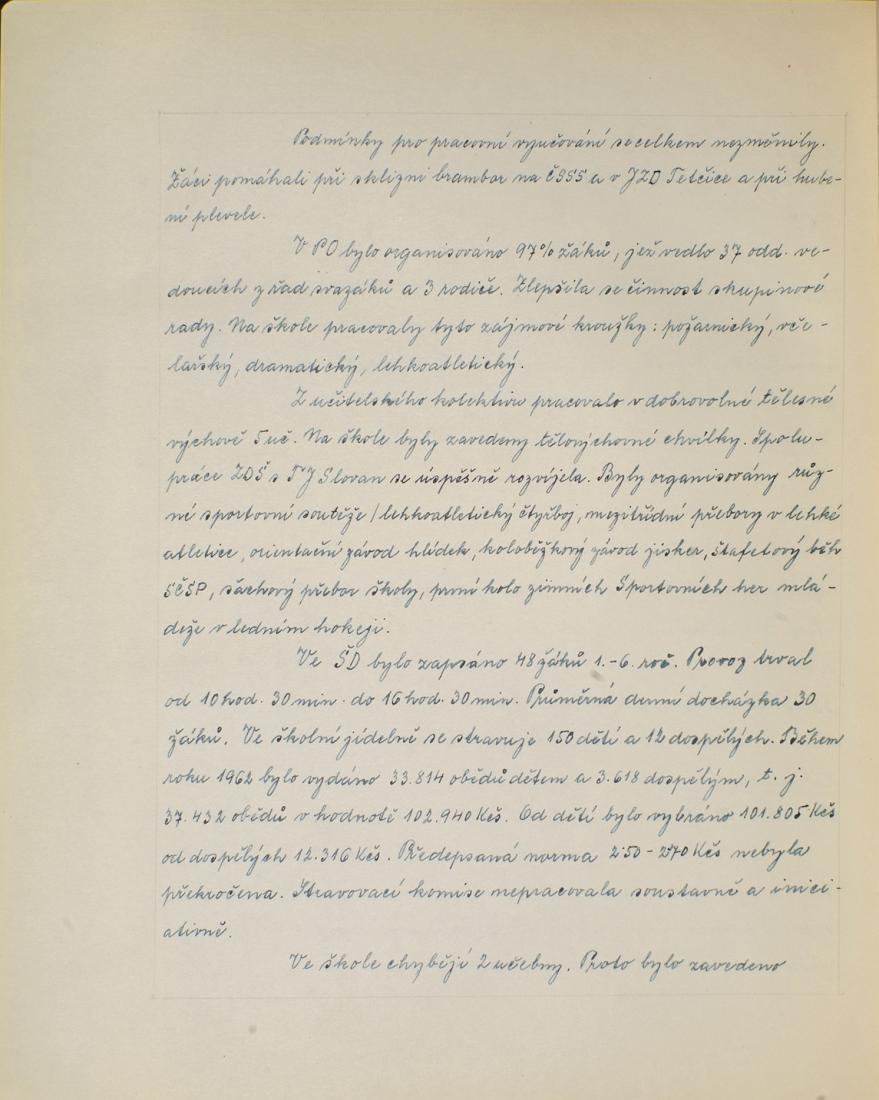 Podmínky pro pracovní vyučování se celkem nezměnily.
Žáci pomáhali při sklizni brambor na ČSSS a v JZD Tetčice a při hube-
ní plevele.
V PO bylo organisováno 97% žáků, jež vedlo 37 odd. ve-
doucích z řad svazáků a 3 rodiče. Zlepšila se činnost skupinové
rady. Na škole pracovaly tyto zájmové kroužky: požárnický, vče-
lařský, dramatický, lehkoatletický.
Z učitelského kolektivu pracovalo v dobrovolné tělesné
výchově 5 uč. Na škole byly zavedeny tělovýchovné chvilky. Spolu-
práce ZDŠ s TJ Slovan se úspěšně rozvíjela. Byly organisovány růz-
né sportovní soutěže / lehkoatletický čtyřboj, mezitřídní přebory v lehké
atletice, orientační závod hlídek, koloběžkový závod jisker, štafetový běh
SČSP, šachový přebor školy, první kolo zimních Sportovních her mlá-
deže v ledním hokeji.
Ve ŠD bylo zapsáno 48 žáků 1.-6. roč. Provoz trval
od 10 hod. 30 min. do 16 hod. 30 min. Průměrná denní docházka 30
žáků. Ve školní jídelně se stravuje 150 dětí a 12 dospělých. Během
roku 1962 bylo vydáno 33.814 obědů dětem a 3.618 dospělým, t. j.
37.432 obědů v hodnotě 102.940 Kčs. Od dětí bylo vybráno 101.805 Kčs
od dospělých 12.316 Kčs. Předepsaná norma 2·50 - 2·70 Kčs nebyla
překročena. Stravovací komise nepracovala soustavně a inici-
ativně.
Ve škole chybějí 2 učebny. Proto bylo zavedeno